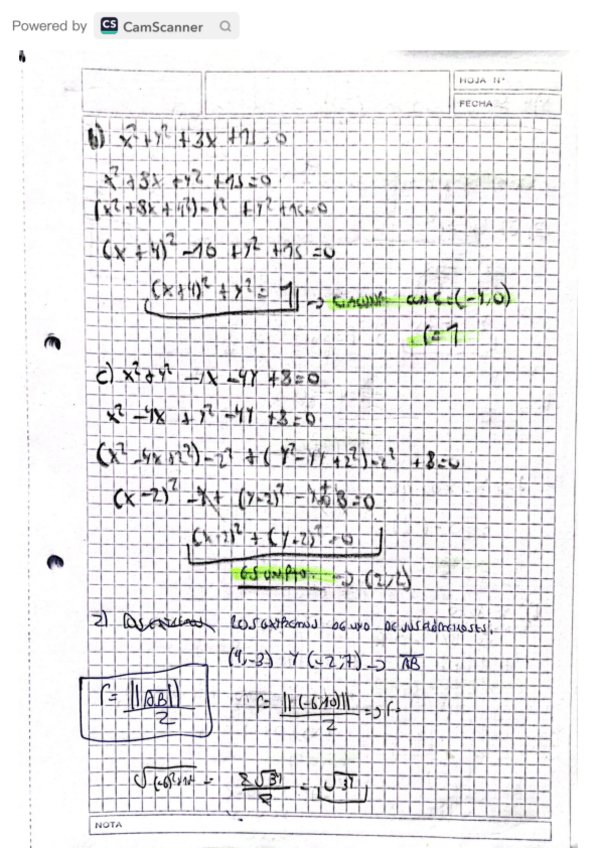 Powered by CS CamScanner
HOJA Nº
FECHA
b) x² + y² + 8x + 15 = 0
x² + 8x + y² + 15 = 0
(x² + 8x + 4²) - 4² + y² + 15 = 0
(x + 4)² - 16 + y² + 15 = 0
(x + 4)² + y² = 1 → CON C = (-4, 0)
r = 1
c) x² + y² - 4x - 4y + 8 = 0
x² - 4x + y² - 4y + 8 = 0
(x² - 4x + 2²) - 2² + (y² - 4y + 2²) - 2² + 8 = 0
(x - 2)² - 4 + (y - 2)² - 4 + 8 = 0
(x - 2)² + (y - 2)² = 0
ES UN PTO. → (2, 2)
2) LOS EXTREMOS DE UNO DE SUS DIÁMETROS
(4, -3) Y (-2, 7) → AB
r = ||AB|| / 2
r = ||(-6, 10)|| / 2 → r =
√(-6)² + 10² = 2√34 / 2 = √34
NOTA